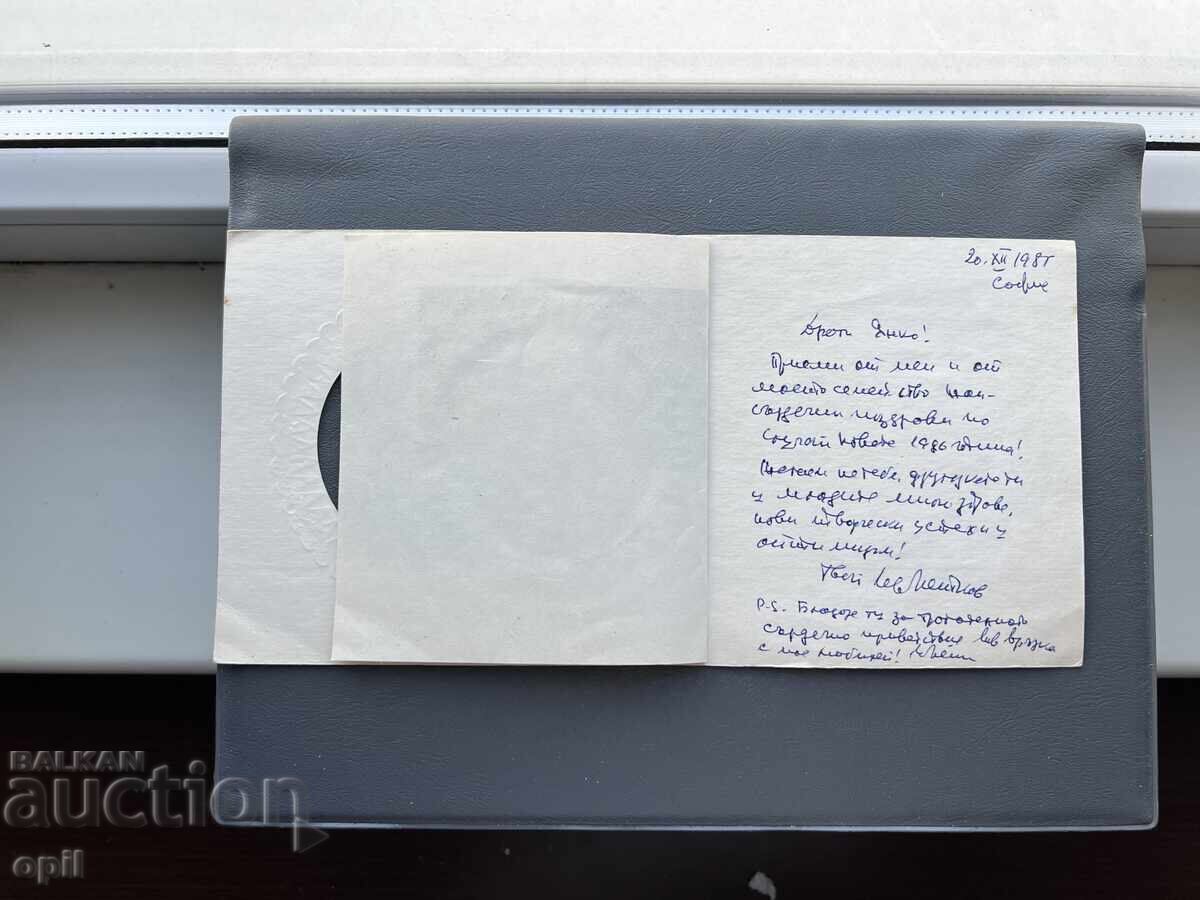 20.XII 198
София
Драги Янко!
Приеми от мен и от
моето семейство най-
сърдечни поздрави по
случай новата 1986 година!
Желаем на тебе, другарката ти
и младите много здраве,
нови творчески успехи и
оптимизъм!
Твой
P.S. Благодаря ти за
сърдечно приветствие във връзка
с моя юбилей!
BALKAN
auction
opil